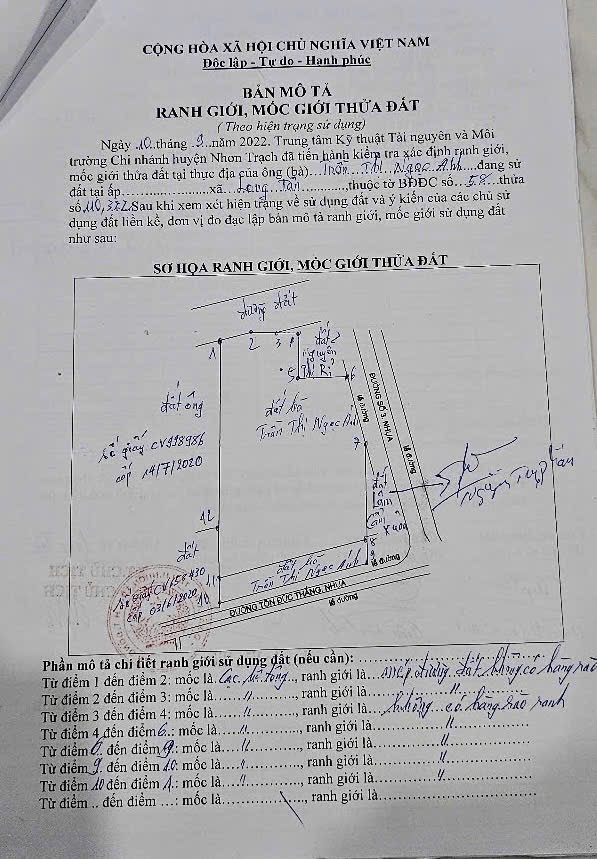 CỘNG HÒA XÃ HỘI CHỦ NGHĨA VIỆT NAM
Độc lập - Tự do - Hạnh phúc
BẢN MÔ TẢ
RANH GIỚI, MỐC GIỚI THỬA ĐẤT
( Theo hiện trạng sử dụng)
Ngày .10.tháng .9..năm 2022. Trung tâm Kỹ thuật Tài nguyên và Môi
trường Chi nhánh huyện Nhơn Trạch đã tiến hành kiểm tra xác định ranh giới,
mốc giới thửa đất tại thực địa của ông (bà)...Trần Thị Ngọc Anh......đang sử
đất tại ấp...............xã...Long Tân..........,thuộc tờ BĐĐC số...58...thửa
số.110, 322.Sau khi xem xét hiện trạng về sử dụng đất và ý kiến của các chủ sử
dụng đất liền kề, đơn vị đo đạc lập bản mô tả ranh giới, mốc giới sử dụng đất
như sau:
SƠ HỌA RANH GIỚI, MỐC GIỚI THỬA ĐẤT
đường đất
1
2
3
4
đất
nguyễn
Thị Rỉ
5
6
đất ông
số giấy CV998986
cấp 14/7/2020
đất bà
Trần Thị Ngọc Anh
lề đường
ĐƯỜNG SỐ 3, NHỰA
lề đường
7
12
đất
đất
8
9
lề đường
đất bà
Trần Thị Ngọc Anh
10
cấp 03/6/2020
ĐƯỜNG TÔN ĐỨC THẮNG, NHỰA
lề đường
Phần mô tả chi tiết ranh giới sử dụng đất (nếu cần):
Từ điểm 1 đến điểm 2: mốc là.Cọc bê tông.., ranh giới là... đường đất không có hàng rào
Từ điểm 2 đến điểm 3: mốc là......"........, ranh giới là........"
Từ điểm 3 đến điểm 4: mốc là......"........, ranh giới là..không có hàng rào ranh
Từ điểm 4 đến điểm6.: mốc là....."........, ranh giới là........"
Từ điểm 6. đến điểm 9.: mốc là...."......., ranh giới là........"
Từ điểm 9. đến điểm 10: mốc là...."......., ranh giới là........"
Từ điểm 10 đến điểm 1.: mốc là...."......., ranh giới là........"
Từ điểm .. đến điểm ...: mốc là..............., ranh giới là........